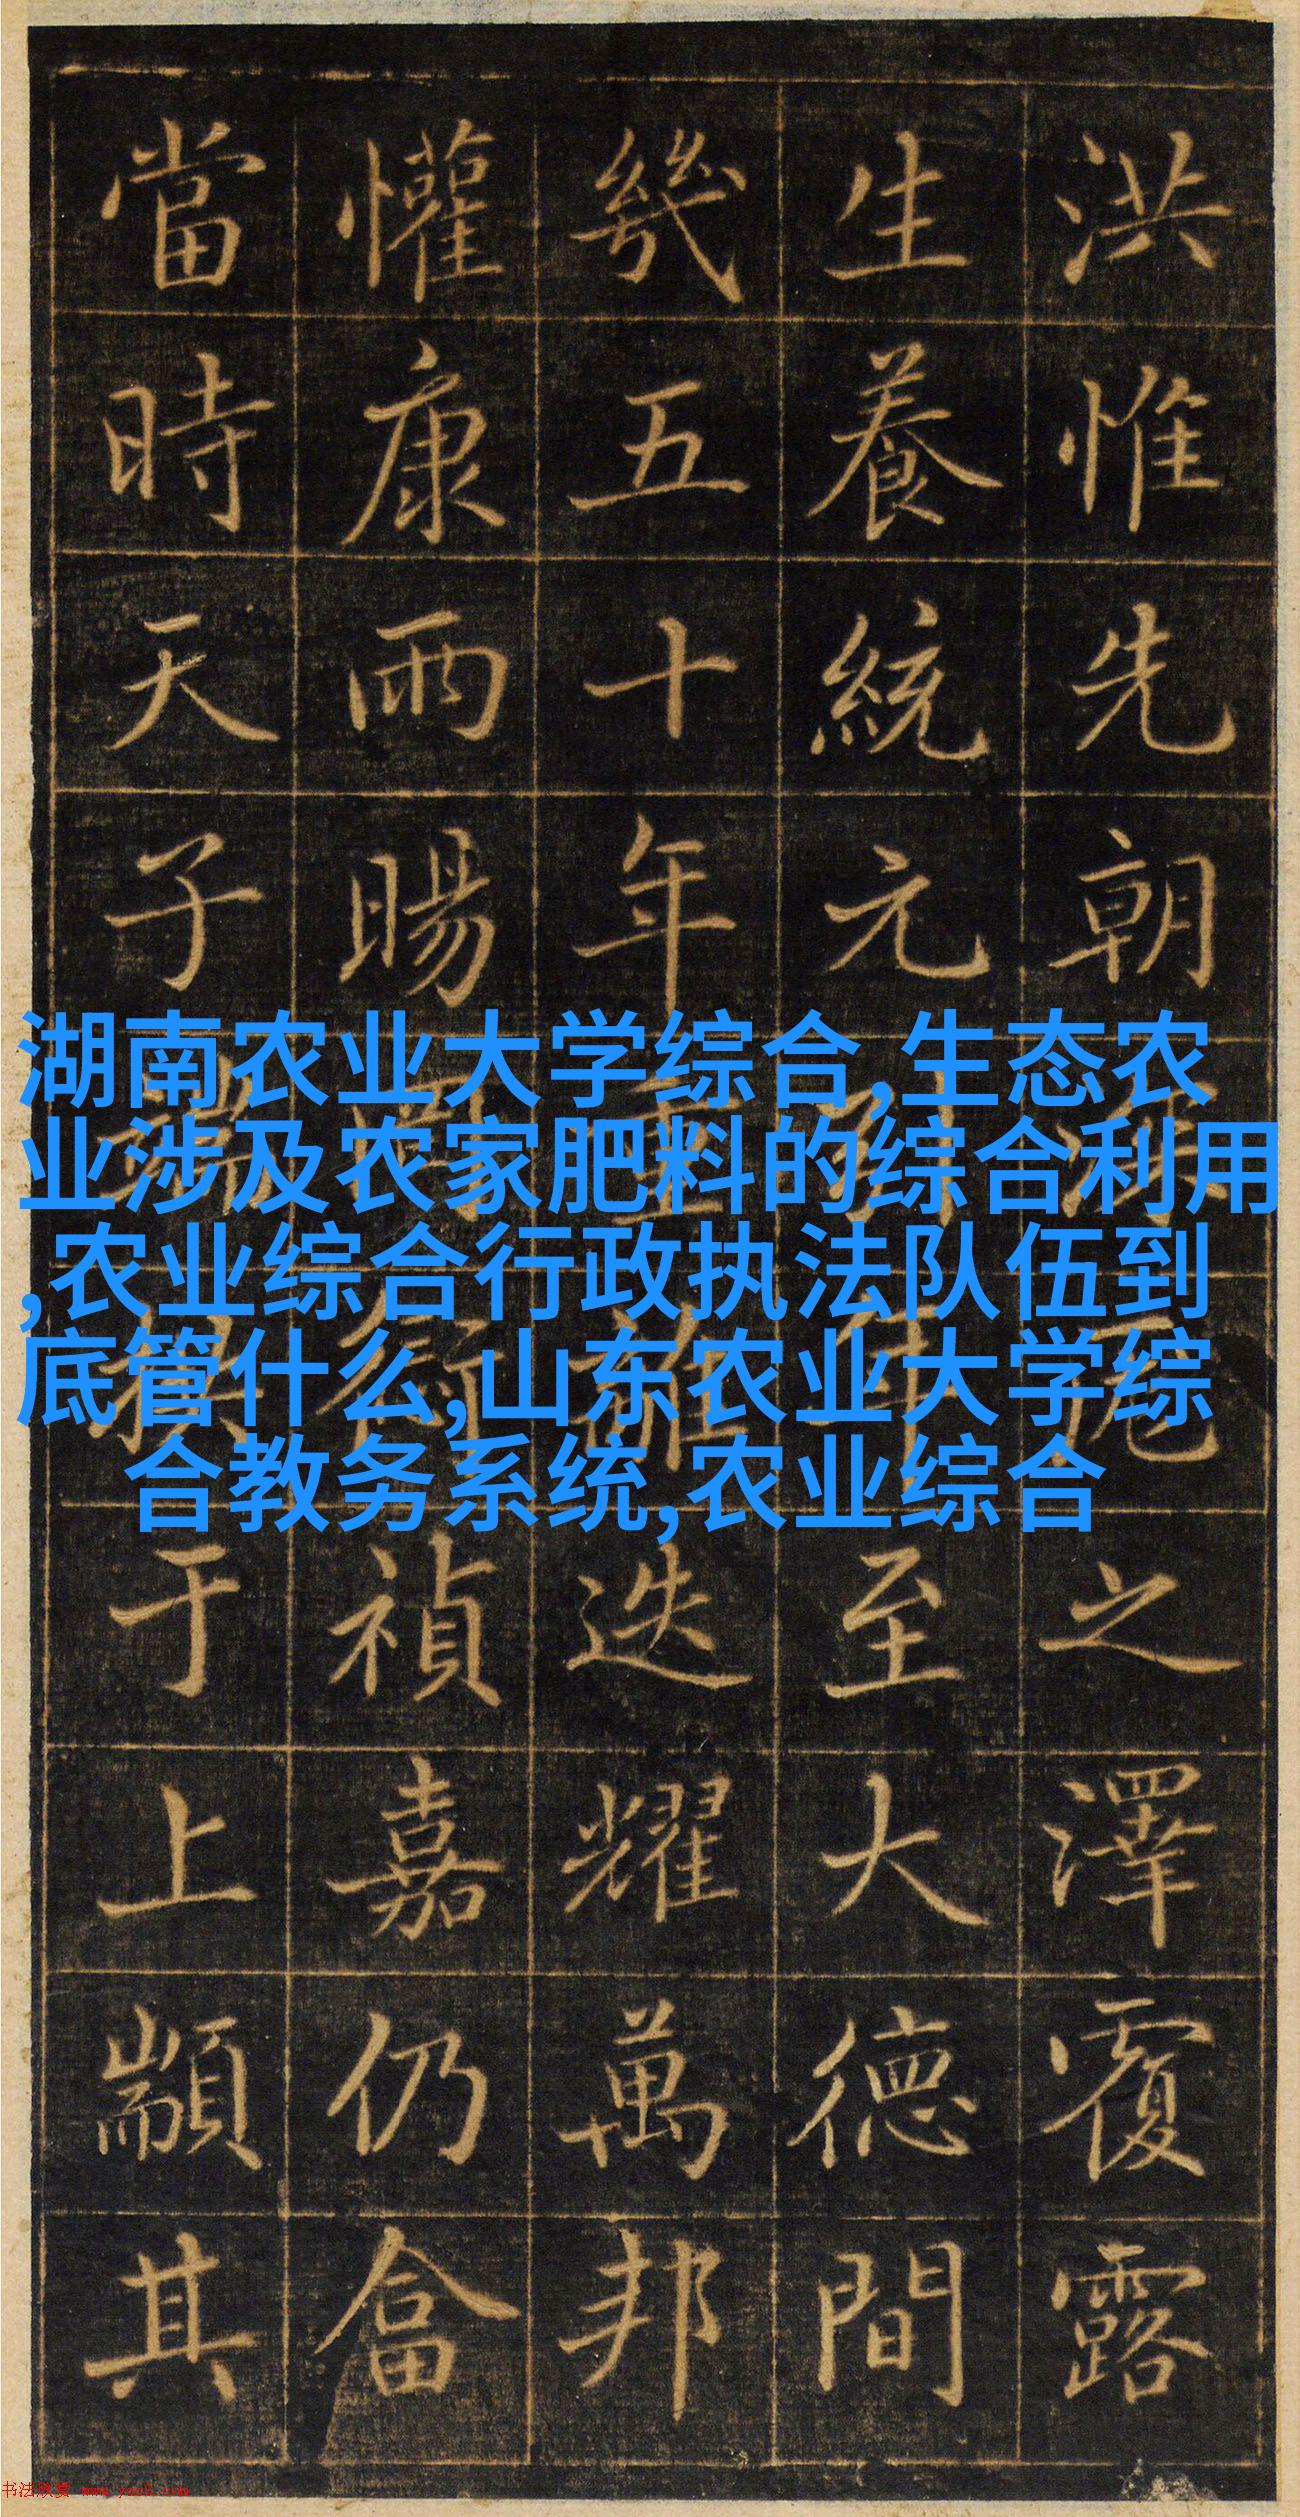 洪惟先朝之澤覆露
生養統元至大德間
幾五十年重離迭耀萬邦
懽康雨暘禎嘉仍畬
當時天子端拱于上顒其
湖南农业大学综合,生态农
业涉及农家肥料的综合利用
,农业综合行政执法队伍到
底管什么,山东农业大学综
合教务系统,农业综合
书法欣赏 www.yac8.com